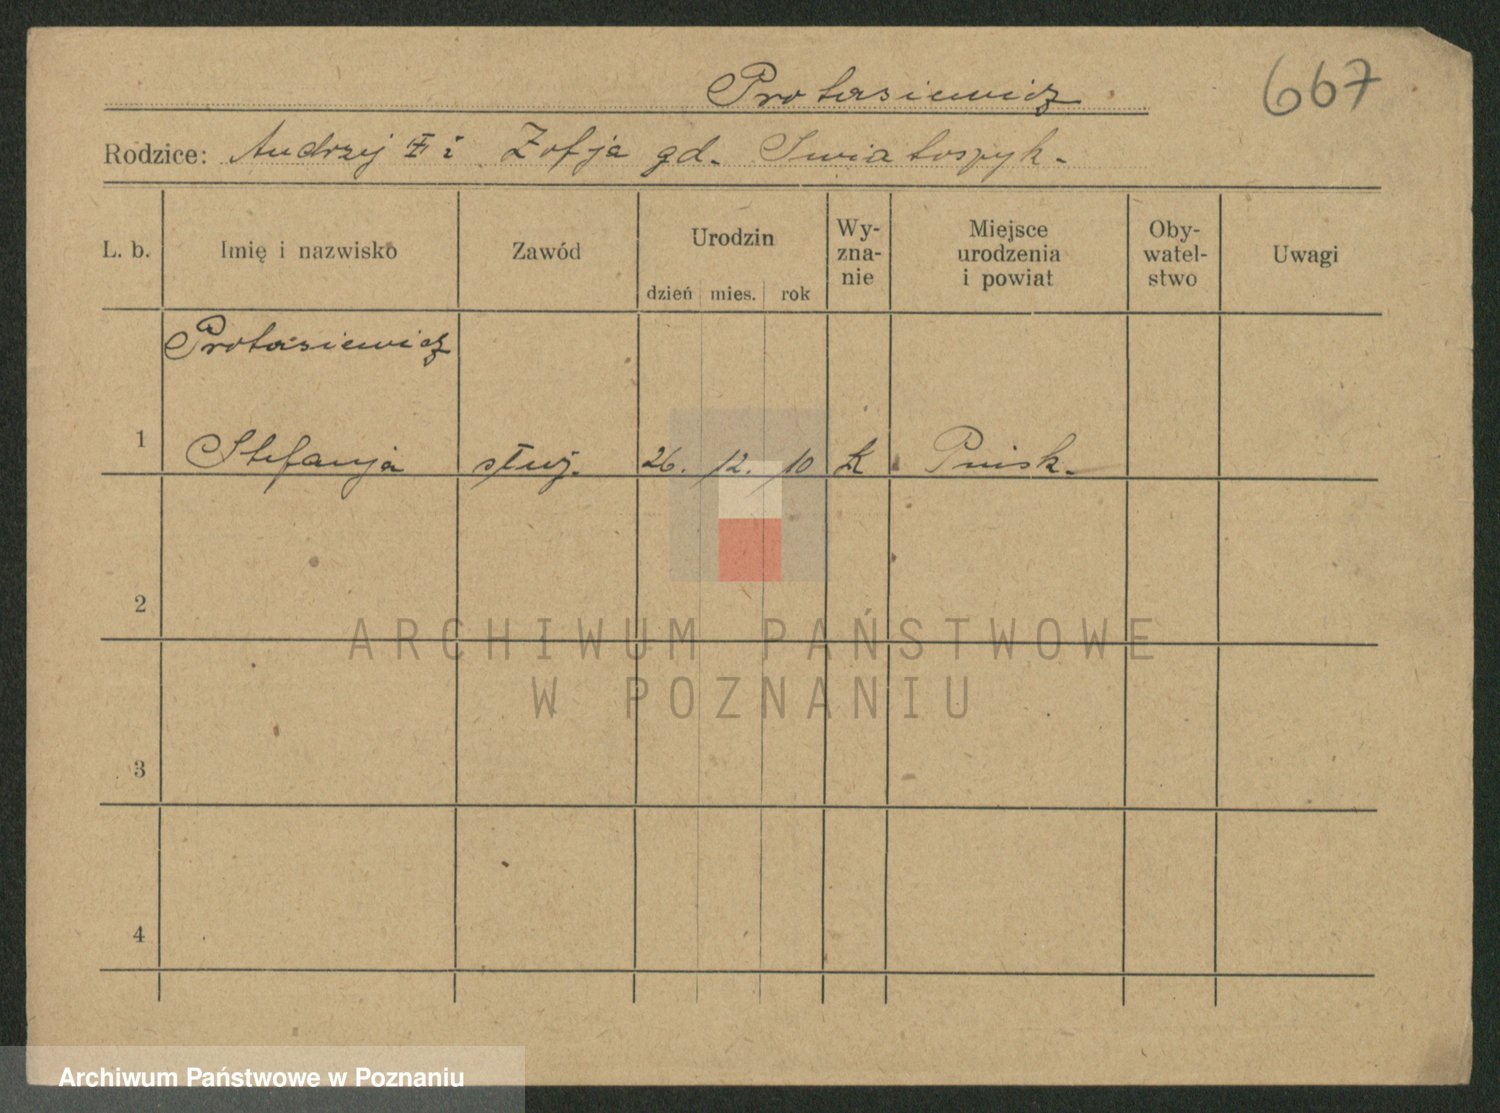 Protasiewicz
667
Rodzice: Andrzej i Zofja gd.
L. b. Imię i nazwisko Zawód Urodzin dzień mies. rok Wy-
zna-
nie Miejsce
urodzenia
i powiat Oby-
watel-
stwo Uwagi
Protasiewicz
1 Stefanja służ. 26. 12. 10 k Pinsk.
2
3
4
ARCHIWUM PAŃSTWOWE
W POZNANIU
Archiwum Państwowe w Poznaniu